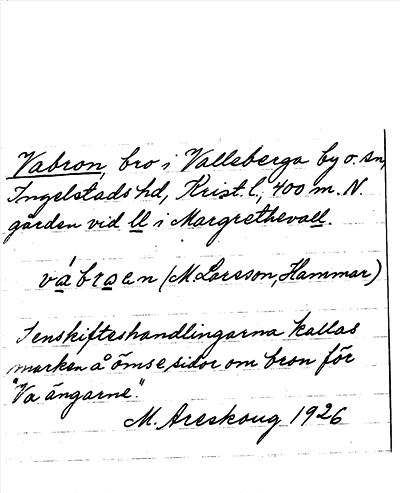 Vabron, bro i Valleberga by o. sn,
Ingelstads hd, Krist. l., 400 m. N.
gården vid ll i Margrethevall.
vábroen (M. Larsson, Hammar)
I enskifteshandlingarna kallas
marken å ömse sidor om bron för
"Va ängarne".
M. Areskoug 1926